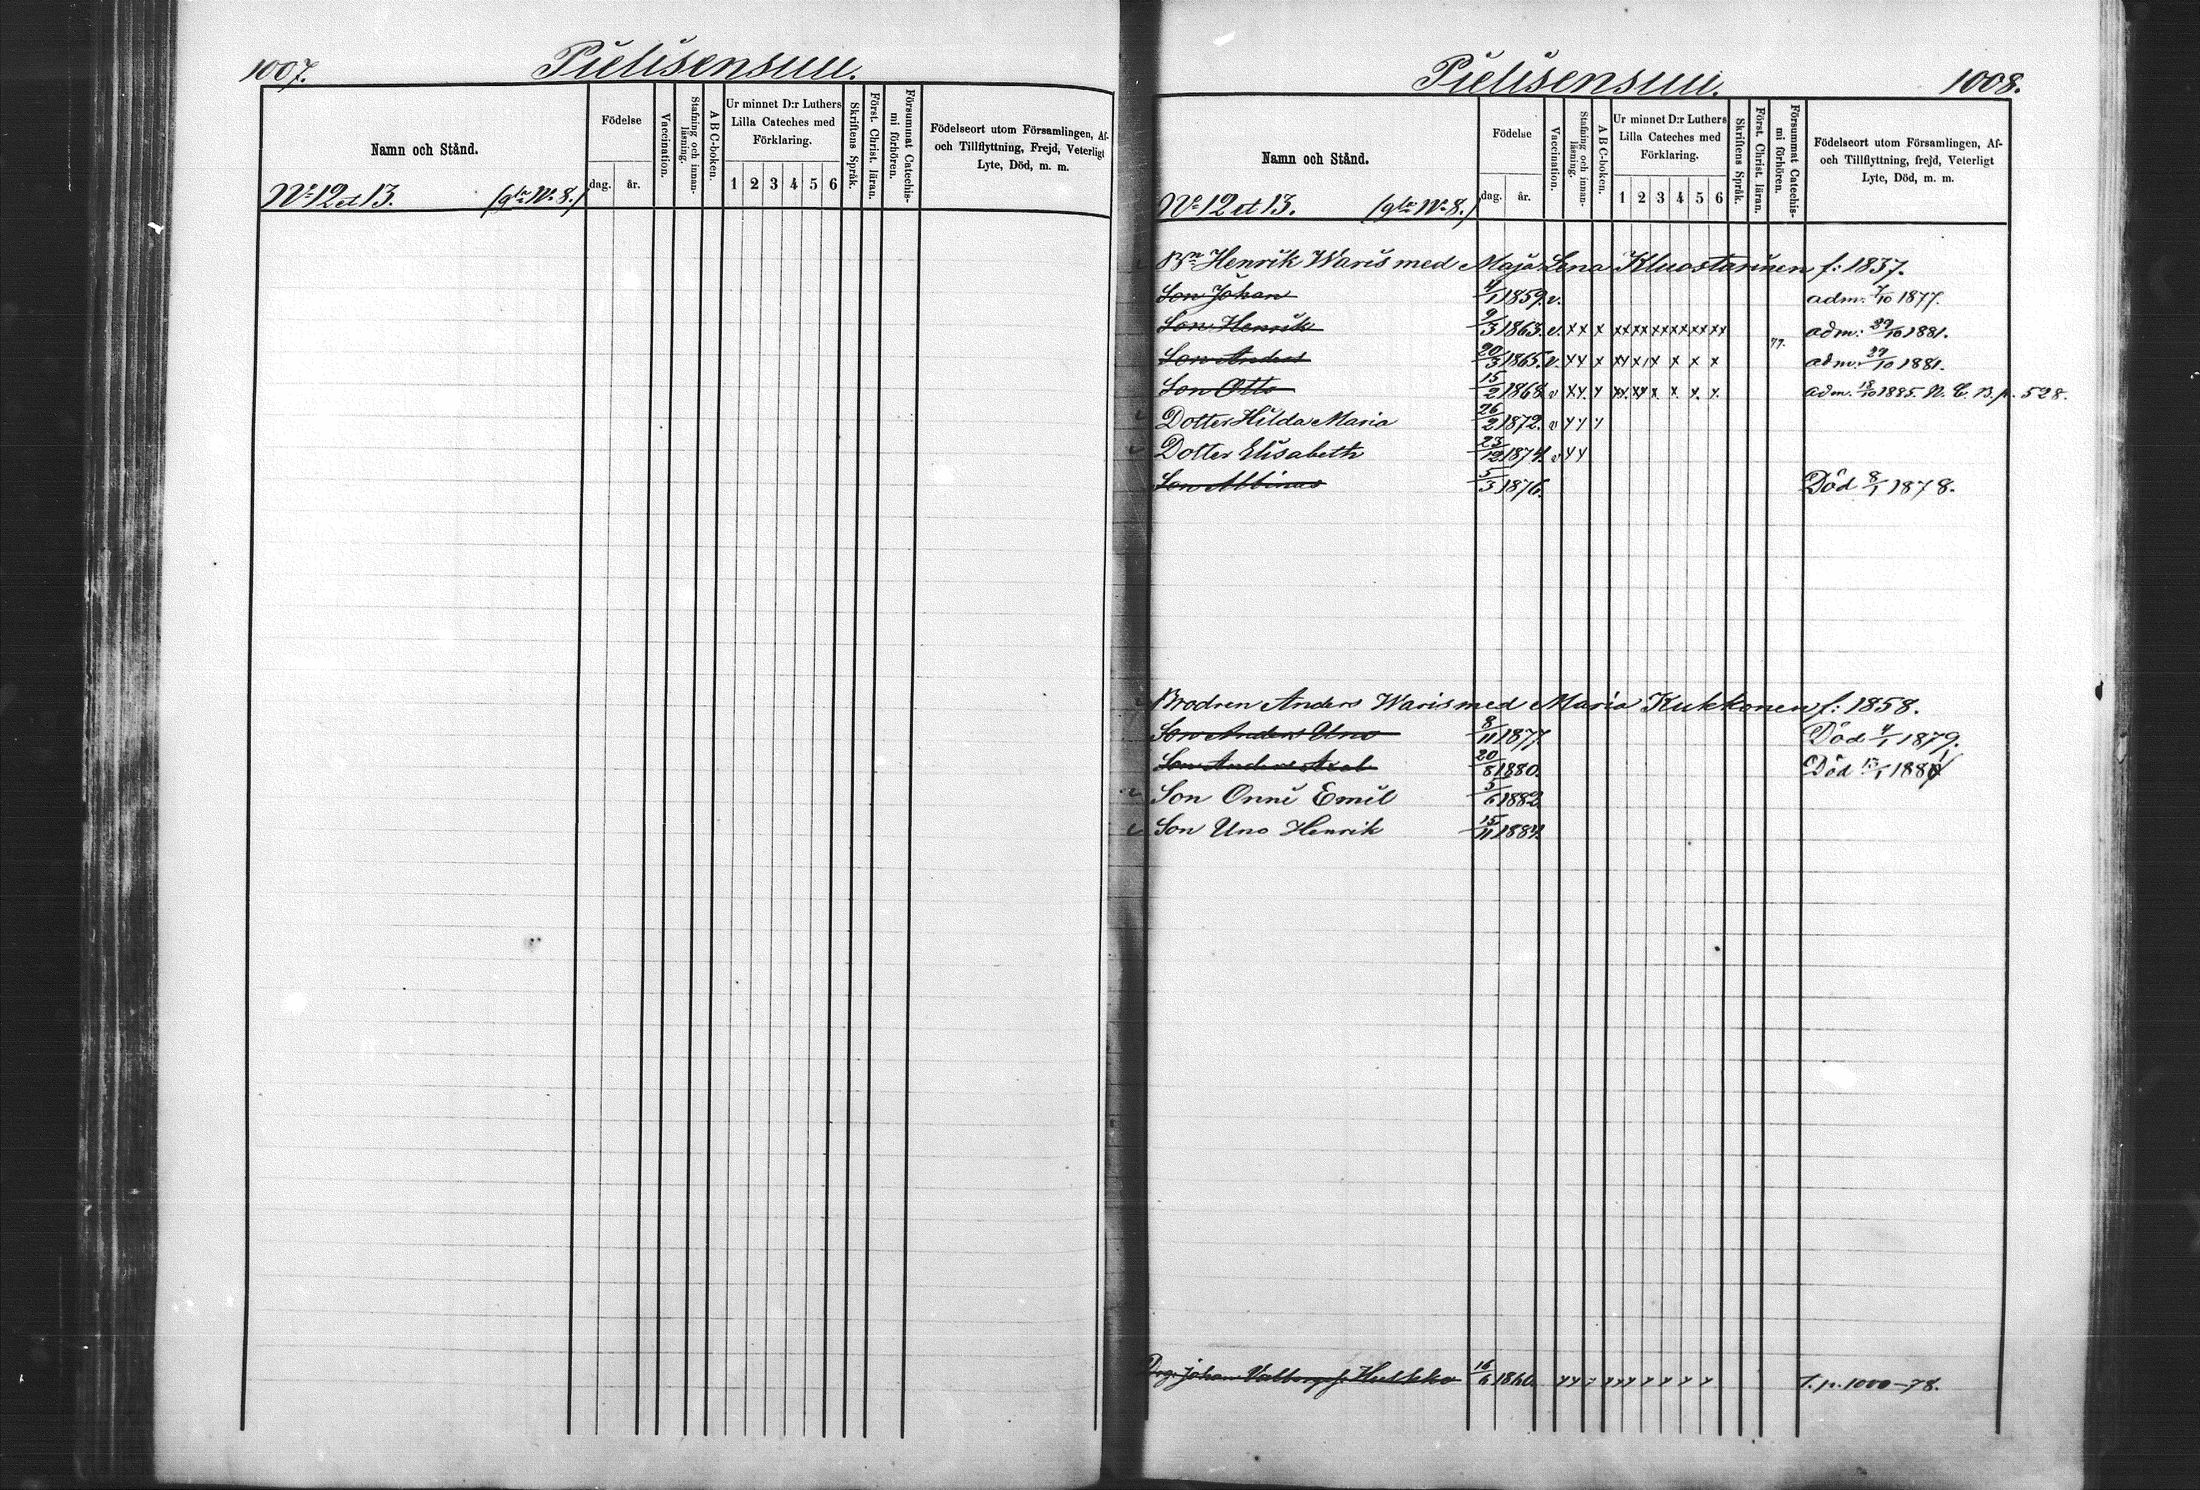 1007.
Pielisensuu.
Namn och Stånd.
Födelse
dag.
år.
Vaccination.
Stafning och innan-
läsning.
A B C-boken.
Ur minnet D:r Luthers
Lilla Cateches med
Förklaring.
1 2 3 4 5 6
Skriftens Språk.
Först. Christ. läran.
Försummat Catechis-
mi förhören.
Födelseort utom Församlingen, Af-
och Tillflyttning, Frejd, Veterligt
Lyte, Död, m. m.
No 12 et 13. (gla No 8.)
Pielisensuu.
1008.
Namn och Stånd.
Födelse
dag.
år.
Vaccination.
Stafning och innan-
läsning.
A B C-boken.
Ur minnet D:r Luthers
Lilla Cateches med
Förklaring.
1 2 3 4 5 6
Skriftens Språk.
Först. Christ. läran.
Försummat Catechis-
mi förhören.
Födelseort utom Församlingen, Af-
och Tillflyttning, frejd, Veterligt
Lyte, Död, m. m.
No 12 et 13. (gla No 8.)
Bn Henrik Waris med Maja Lena Kluostarinen f: 1837.
Son Johan 1859. v. adm: 7/10 1877.
Son Henrik 9/3 1863. v. x x x xx xx xx x x x x x adm: 29/10 1881.
77.
Son Anders 20/3 1865. v. x x x xx x x x x x x adm: 29/10 1881.
Son Otto 15/2 1868 v x x x xx xx x x x x adm. 18/10 1885. N. C. B. p. 528.
Dotter Hilda Maria 26/2 1872. v x x x
Dotter Elisabeth 23/12 1874. v x x
Son Albinus 5/3 1876. Död 8/1 1878.
Brodren Anders Waris med Maria Kukkonen f: 1858.
Son Anders Uno 8/11 1877 Död 4/1 1879.
Son Anders Axel 20/8 1880. Död 13/1 1881
Son Onni Emil 5/6 1882
Son Uno Henrik 15/11 1884.
Drg: Johan Valborgss. Hukka 16/6 1860. x x x x x x x x x x x T. p. 1000–78.